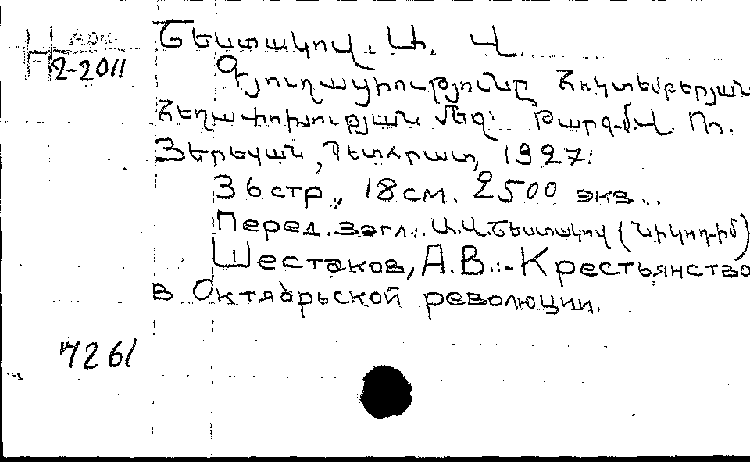 Շեստակով. Ա. Վ.
Н 2-2011
Գյուղացիությունը Հոկտեմբերյան
Հեղափոխության մեջ: Թարգմ.
Յերեվան, Պետհրատ, 1927:
36 стр., 18 см. 2500 экз..
Перед. загл.: Ա.Վ. Շեստակով
Шестаков, А.В.:-Крестьянство
в Октябрьской революции.
7261